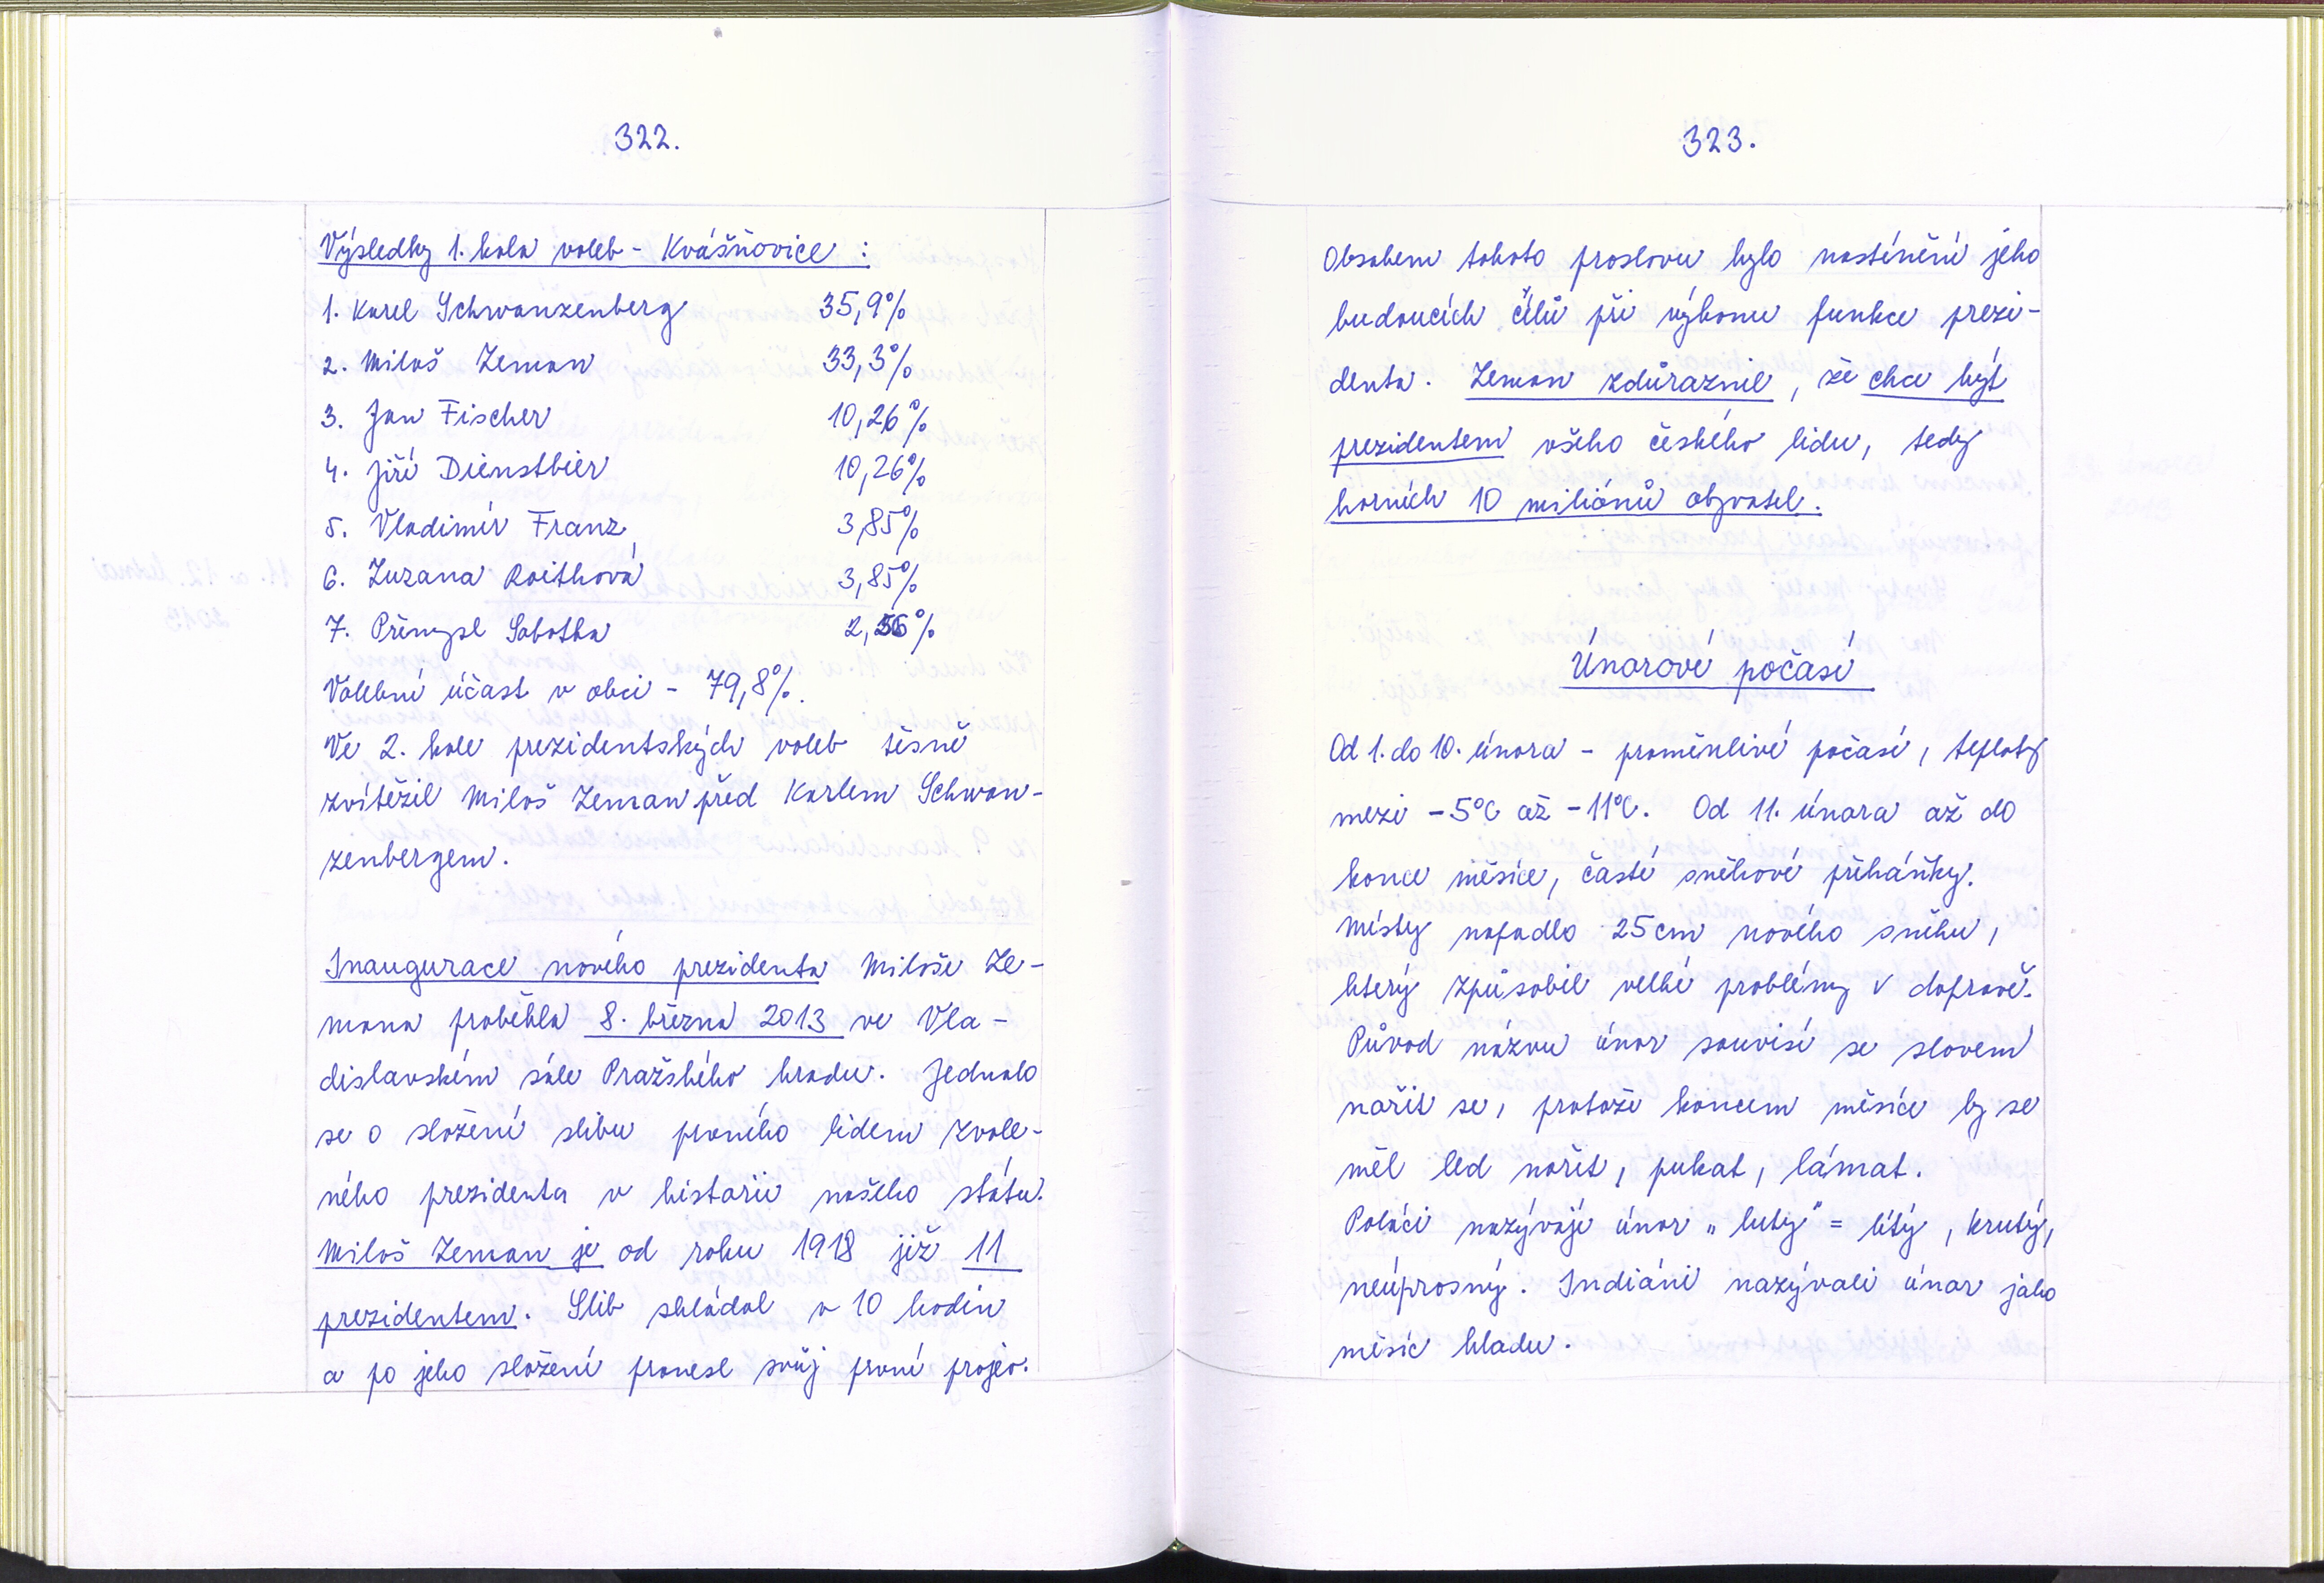 322.
Výsledky 1. kola voleb - Kvášňovice :
1. Karel Schwanzenberg 35,9%
2. Miloš Zeman 33,3%
3. Jan Fischer 10,26%
4. Jiří Dienstbier 10,26%
5. Vladimír Franz 3,85%
6. Zuzana Roithová 3,85%
7. Přemysl Sobotka 2,56%
Volební účast v obci - 79,8%.
Ve 2. kole prezidentských voleb těsně
zvítězil Miloš Zeman před Karlem Schwan-
zenbergem.
Inaugurace nového prezidenta Miloše Ze-
mana proběhla 8. března 2013 ve Vla-
dislavském sále Pražského hradu. Jednalo
se o složení slibu prvního lidem zvole-
ného prezidenta v historii našeho státu.
Miloš Zeman je od roku 1918 již 11
prezidentem. Slib skládal v 10 hodin
a po jeho složení pronesl svůj první projev.
323.
Obsahem tohoto proslovu bylo nastínění jeho
budoucích cílů při výkonu funkce prezi-
denta. Zeman zdůraznil, že chce být
prezidentem všeho českého lidu, tedy
horních 10 miliónů obyvatel.
Únorové počasí
Od 1. do 10. února - proměnlivé počasí, teploty
mezi -5°C až -11°C. Od 11. února až do
konce měsíce, časté sněhové přeháňky.
Místy napadlo 25cm nového sněhu,
který způsobil velké problémy v dopravě.
Původ názvu únor souvisí se slovem
nořit se, protože koncem měsíce by se
měl led nořit, pukat, lámat.
Poláci nazývají únor „luty" = lítý, krutý,
neúprosný. Indiáni nazývali únor jako
měsíc hladu.